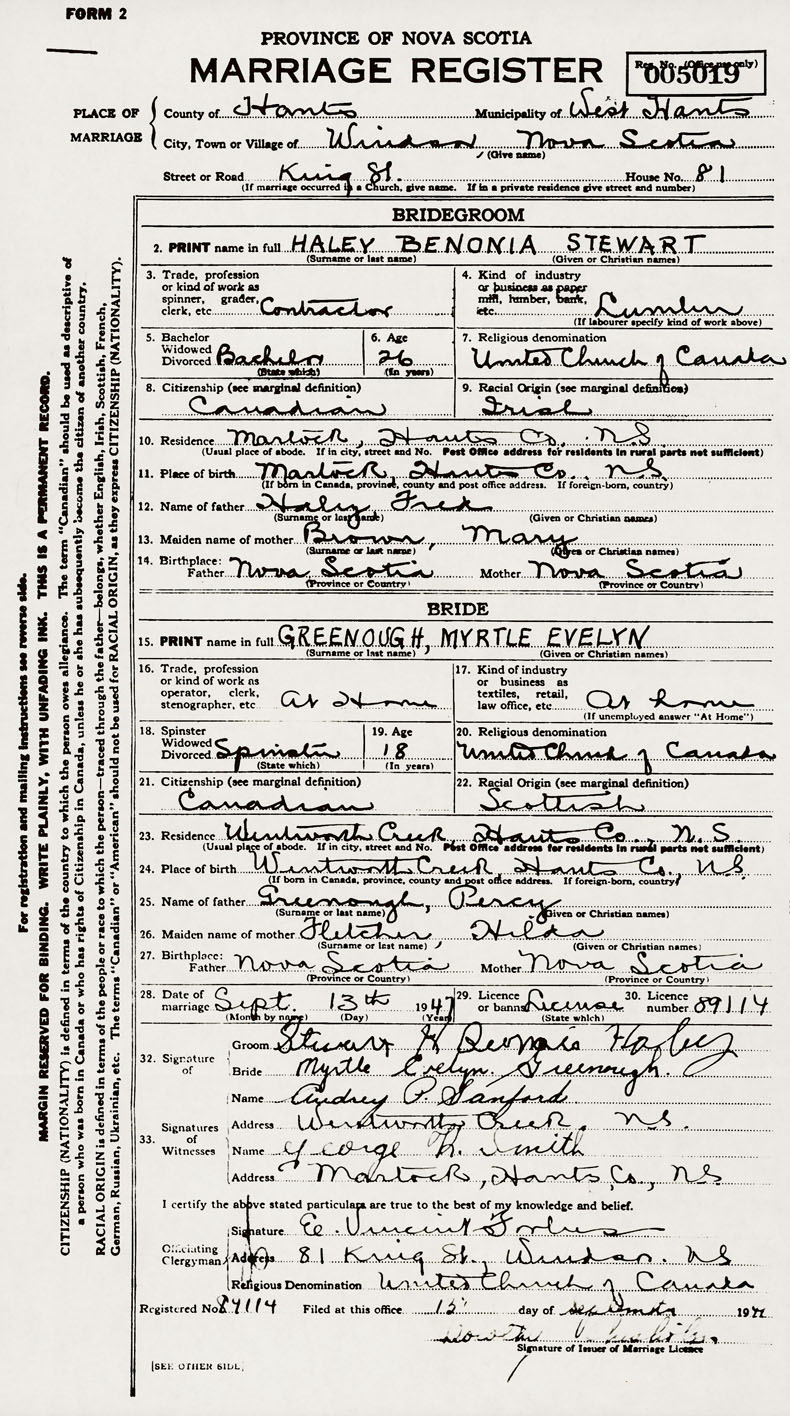 FORM 2
PROVINCE OF NOVA SCOTIA
MARRIAGE REGISTER
Reg. No. (Office use only)
005019
PLACE OF MARRIAGE
County of Hants Municipality of West Hants
City, Town or Village of Windsor Nova Scotia
(Give name)
Street or Road King St. House No. 81
(If marriage occurred in a Church, give name. If in a private residence give street and number)
BRIDEGROOM
2. PRINT name in full HALEY BENONIA STEWART
(Surname or last name) (Given or Christian names)
3. Trade, profession or kind of work as spinner, grader, clerk, etc. Contractor
4. Kind of industry or business as paper mill, lumber, bank, etc. Lumber
(If labourer specify kind of work above)
5. Bachelor Widowed Divorced Bachelor
(State which)
6. Age 26
(In years)
7. Religious denomination
United Church of Canada
8. Citizenship (see marginal definition)
Canadian
9. Racial Origin (see marginal definition)
Irish
10. Residence Martock, Hants Co., N.S.
(Usual place of abode. If in city, street and No. Post Office address for residents in rural parts not sufficient)
11. Place of birth Martock, Hants Co., N.S.
(If born in Canada, province, county and post office address. If foreign-born, country)
12. Name of father Haley Fred
(Surname or last name) (Given or Christian names)
13. Maiden name of mother Brown, Mary
(Surname or last name) (Given or Christian names)
14. Birthplace:
Father Nova Scotia Mother Nova Scotia
(Province or Country) (Province or Country)
BRIDE
15. PRINT name in full GREENOUGH, MYRTLE EVELYN
(Surname or last name) (Given or Christian names)
16. Trade, profession or kind of work as operator, clerk, stenographer, etc At Home
17. Kind of industry or business as textiles, retail, law office, etc. At home
(If unemployed answer "At Home")
18. Spinster Widowed Divorced Spinster
(State which)
19. Age 18
(In years)
20. Religious denomination
United Church of Canada
21. Citizenship (see marginal definition)
Canadian
22. Racial Origin (see marginal definition)
Scottish
23. Residence Wentworth Creek, Hants Co., N.S.
(Usual place of abode. If in city, street and No. Post Office address for residents in rural parts not sufficient)
24. Place of birth Wentworth Creek, Hants Co., N.S.
(If born in Canada, province, county and post office address. If foreign-born, country)
25. Name of father Greenough, Percy
(Surname or last name) (Given or Christian names)
26. Maiden name of mother Fletcher, Hilda
(Surname or last name) (Given or Christian names)
27. Birthplace:
Father Nova Scotia Mother Nova Scotia
(Province or Country) (Province or Country)
28. Date of marriage Sept. 13th 1947
(Month by name) (Day) (Year)
29. Licence or banns License
(State which)
30. Licence number 89114
32. Signature of
Groom Stewart Haley
Bride Myrtle Evelyn Greenough.
33. Signatures of Witnesses
Name Audrey P. Sanford
Address Wentworth Creek, N.S.
Name George H. Smith
Address Martock, Hants, Co., N.S
I certify the above stated particulars are true to the best of my knowledge and belief.
Officiating Clergyman
Signature E. Vincent Forbes
Address 81 King St., Windsor. N.S
Religious Denomination United Church of Canada
Registered No. 89114 Filed at this office 15 day of September 19
Signature of Issuer of Marriage Licence
[SEE OTHER SIDE]
For registration and mailing instructions see reverse side.
MARGIN RESERVED FOR BINDING. WRITE PLAINLY, WITH UNFADING INK. THIS IS A PERMANENT RECORD.
CITIZENSHIP (NATIONALITY) is defined in terms of the country to which the person owes allegiance. The term "Canadian" should be used as descriptive of
a person who was born in Canada or who has rights of Citizenship in Canada, unless he or she has subsequently become the citizen of another country.
RACIAL ORIGIN is defined in terms of the people or race to which the person—traced through the father—belongs, whether English, Irish, Scottish, French,
German, Russian, Ukrainian, etc. The terms "Canadian" or "American" should not be used for RACIAL ORIGIN, as they express CITIZENSHIP (NATIONALITY).